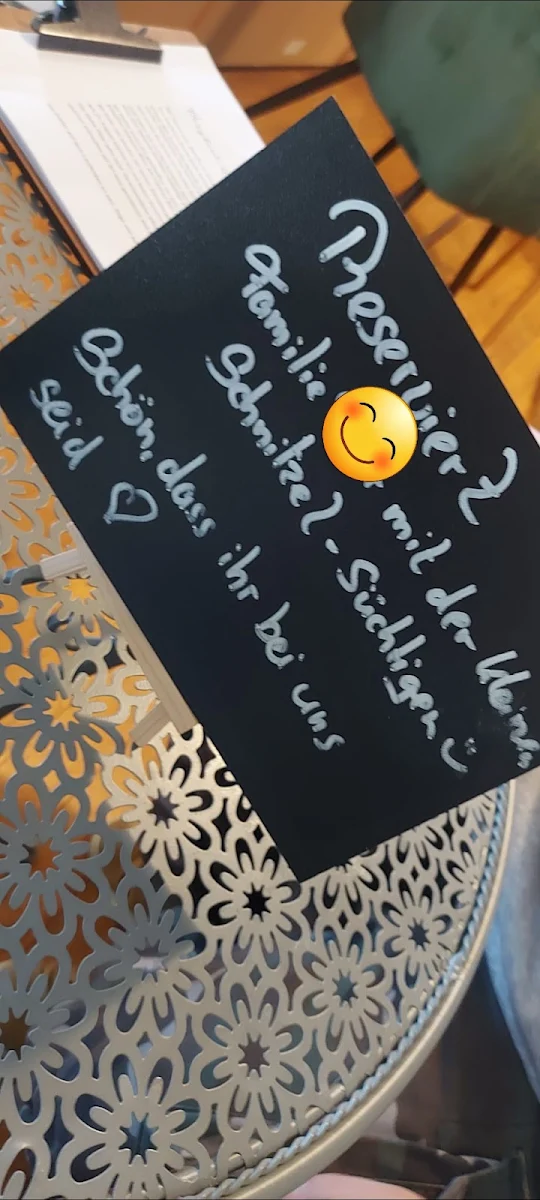 Reserviert
Familie 😊r mit der kleinen
Schnitzel-Süchtigen :)
Schön, dass ihr bei uns
seid ♡